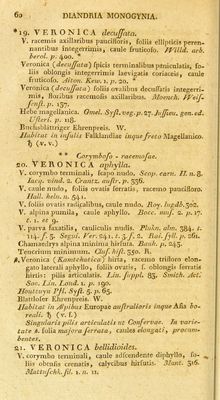 60 DIANDRIA MONOGYNIA.
*19. VERONICA decussata.
V. racemis axillaribus paucifloris, foliis ellipticis perennantibus integerrimis, caule fruticoso. Willd. arb.
berol. p. 400. *
Veronica (decussata) spicis terminalibus paniculatis, foliis oblongis integerrimis laevigatis coriaceis, caule
fruticoso. Aiton. Kew. 1. p. 20. *
Veronica (decussata) foliis ovalibus decussatis integerrimis, floribus racemosis axillaribus. Moench. Weissenst. p. 137.
Hebe magellanica. Gmel. Syst. veg. p. 27. Jussieu. gen. ed.
Usteri. p. 118.
Buchsblättriger Ehrenpreis. W.
Habitat in insulis Falklandiae inque freto Magellanico.
♄ (v. v.)
** Corymboso-racemosae.
20. VERONICA aphylla.
V. corymbo terminali, scapo nudo. Scop. carn. II. n. 8.
Jacq. vind. 2. Crantz. austr. p. 336.
V. caule nudo, foliis ovatis serratis, racemo paucifloro.
Hall. helv. n. 541.
V. foliis ovatis radicalibus, caule nudo. Roy. lugdb. 302.
V. alpina pumila, caule aphyllo. Bocc. mus. 2. p. 17.
t. 1. et 9.
V. parva saxatilis, cauliculis nudis. Plukn. alm. 384. t.
114. f. 3. Segui. Ver. 241. t. 3. f. 2. Ball. syll. p. 261.
Chamaedrys alpina minima hirsuta. Bauh. p. 245.
Teucrium minimum. Clus. hist. 350. R.
Veronica (Kamtchatica) hirta, racemo trifloro elongato laterali aphyllo, foliis ovatis,
hirtis: pilis articulatis. Lin. suppl. 83. Smith. Act.
Soc. Lin. Lond. 1. p. 190.
Houttuyn Pfl. Syst. 5. p. 65.
Blattlofer Ehrenpreis. W.
Habitat in Alpibus Europae australioris inque Asia boreali. ♄ (v. f.)
Singularis pilis articulatis ut Confervae. In varietate folia majora serrata, caules elongati, procumbentes.
21. VERONICA bellidioides.
V. corymbo terminali, caule adscendente diphyllo, foliis obtusis crenatis, calycibus hirsutis. Mant. 316.